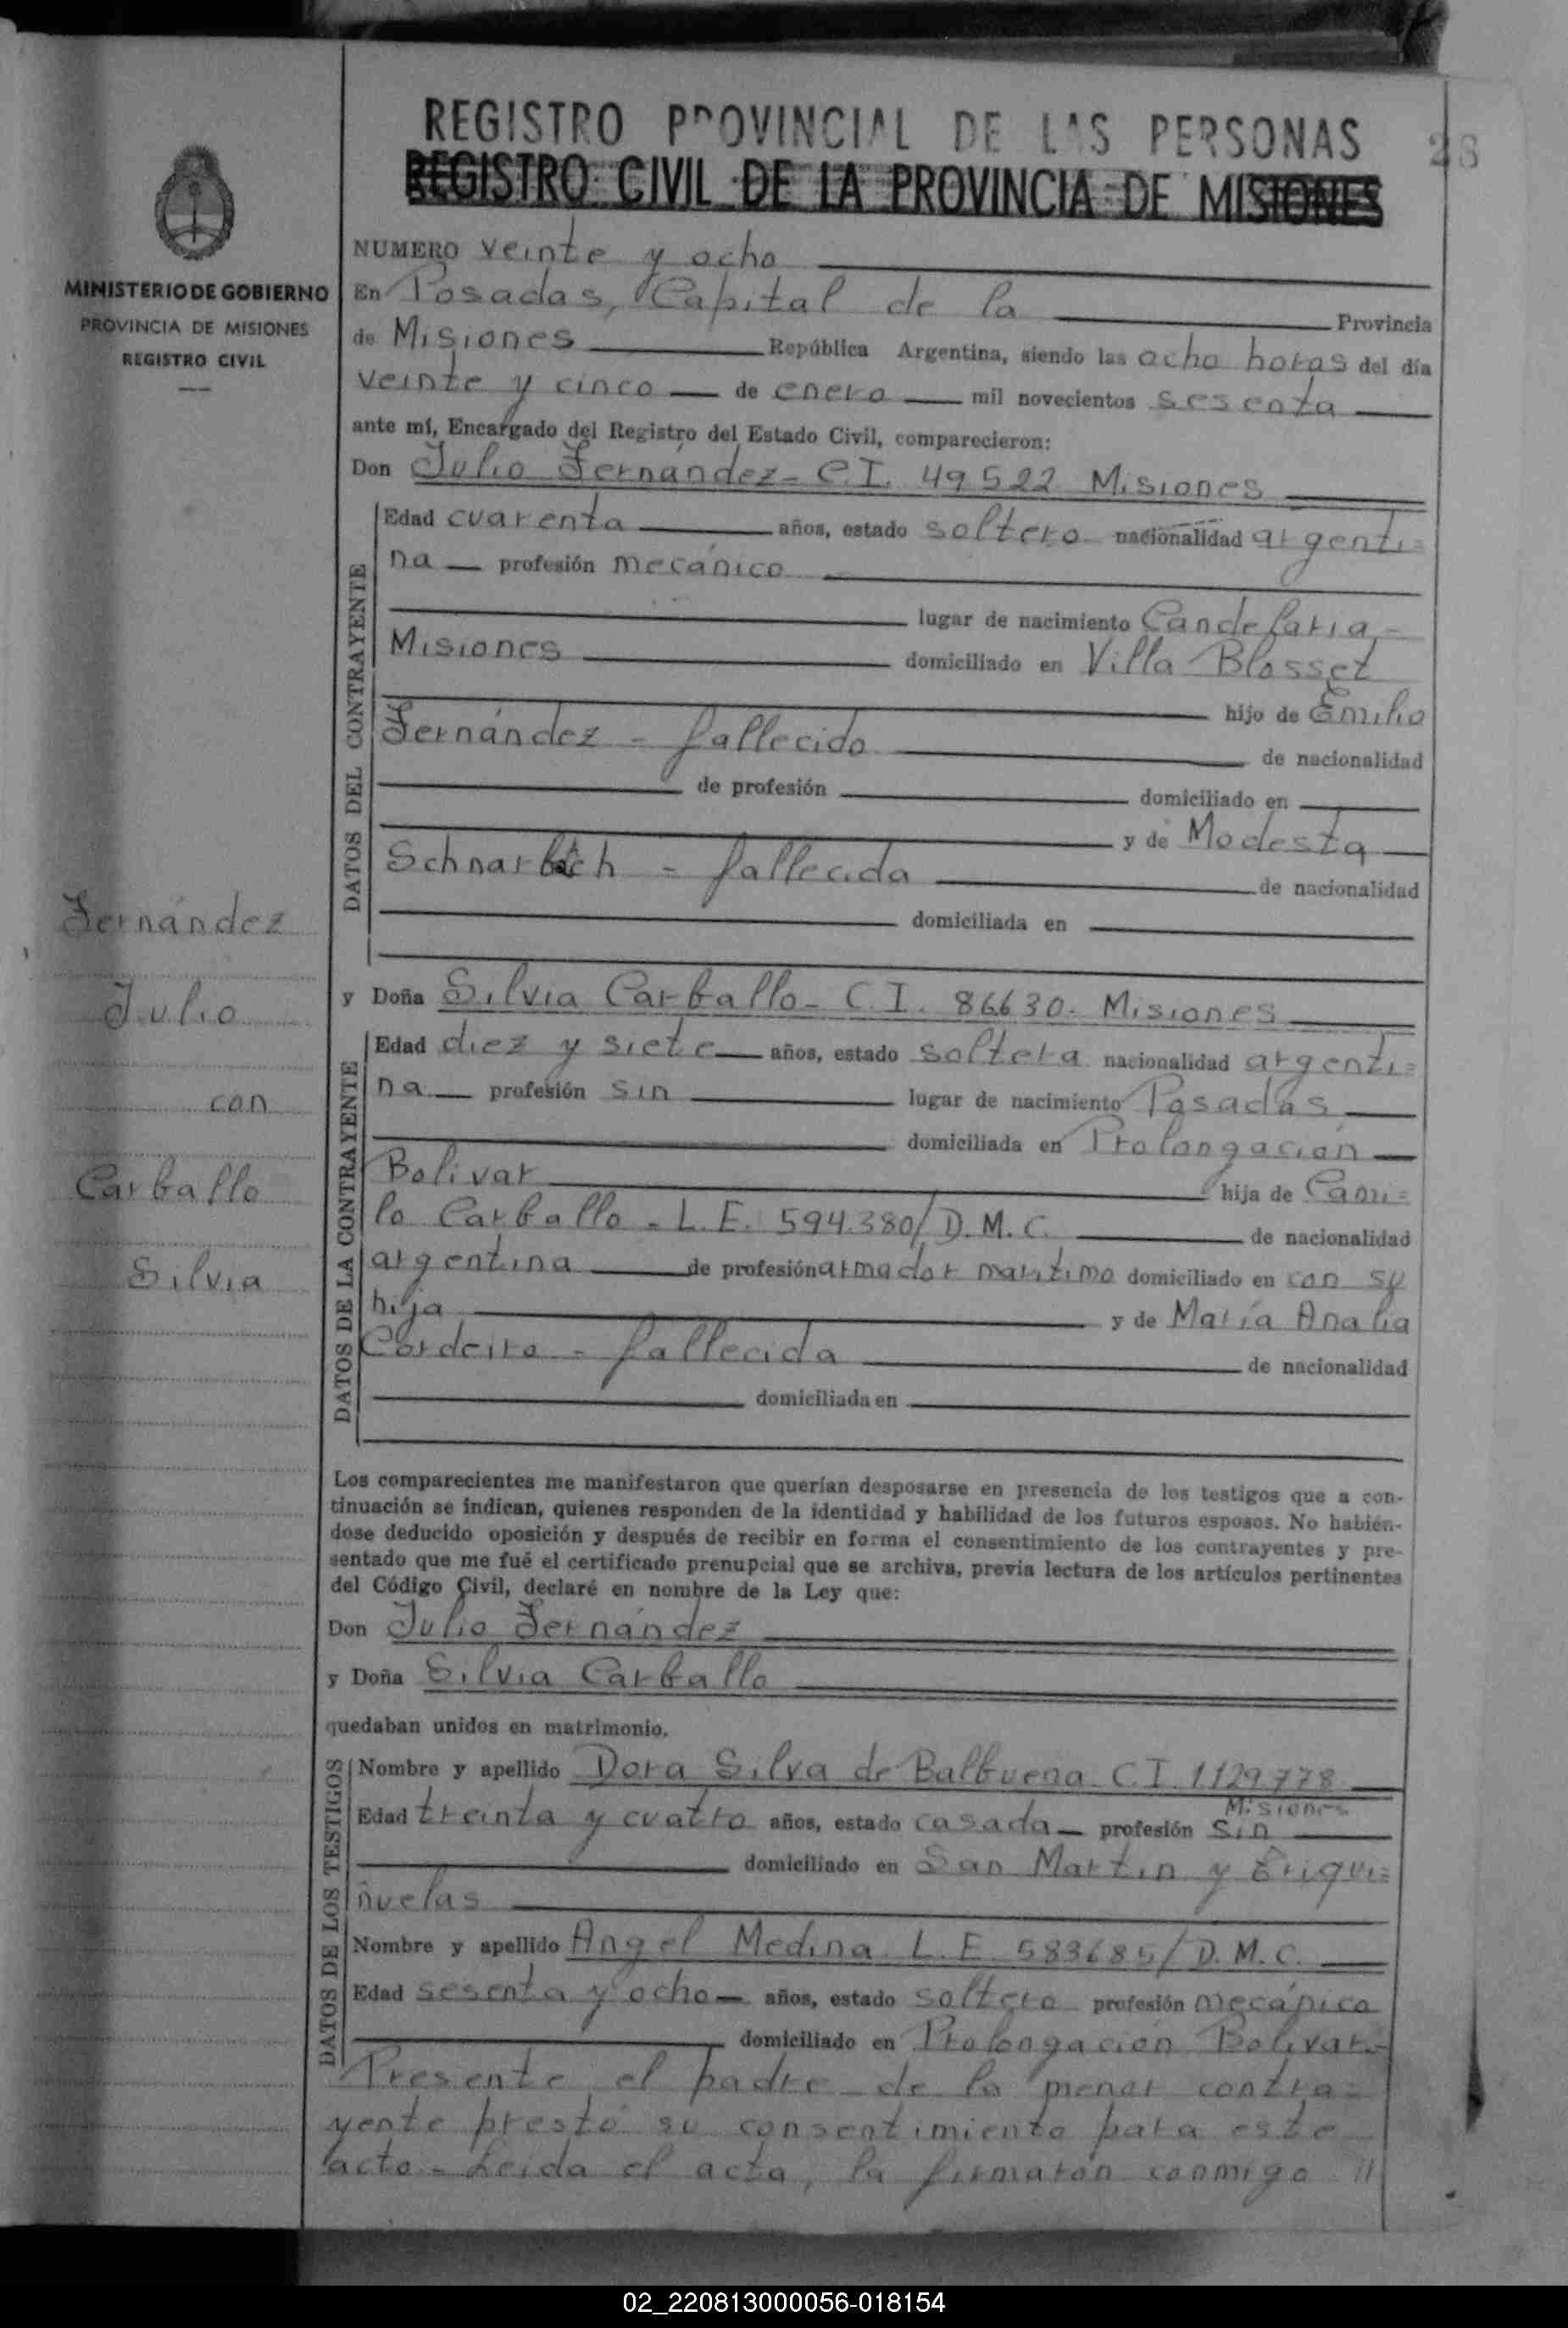 REGISTRO PROVINCIAL DE LAS PERSONAS
28
REGISTRO CIVIL DE LA PROVINCIA DE MISIONES
MINISTERIO DE GOBIERNO
PROVINCIA DE MISIONES
REGISTRO CIVIL
NUMERO veinte y ocho
En Posadas, Capital de la Provincia
de Misiones República Argentina, siendo las ocho horas del día
veinte y cinco de enero mil novecientos sesenta
ante mí, Encargado del Registro del Estado Civil, comparecieron:
Don Julio Fernández - C.I. 49522 Misiones
DATOS DEL CONTRAYENTE
Edad cuarenta años, estado soltero nacionalidad argenti=
na profesión mecánico
lugar de nacimiento Candelaria -
Misiones domiciliado en Villa Blosset
hijo de Emilio
Fernández - fallecido de nacionalidad
de profesión domiciliado en
y de Modesta
fallecida de nacionalidad
domiciliada en
Fernández
Julio
con
Carballo
Silvia
y Doña Silvia Carballo - C.I. 86630 - Misiones
DATOS DE LA CONTRAYENTE
Edad diez y siete años, estado soltera nacionalidad argenti=
na profesión sin lugar de nacimiento Posadas
domiciliada en Prolongación
Bolivar hija de Cami=
lo Carballo - L.E. 594.380/D.M.C. de nacionalidad
argentina de profesión armador marítimo domiciliado en con su
hija y de María Analia
Cordeiro - fallecida de nacionalidad
domiciliada en
Los comparecientes me manifestaron que querían desposarse en presencia de los testigos que a con-
tinuación se indican, quienes responden de la identidad y habilidad de los futuros esposos. No habién-
dose deducido oposición y después de recibir en forma el consentimiento de los contrayentes y pre-
sentado que me fué el certificado prenupcial que se archiva, previa lectura de los artículos pertinentes
del Código Civil, declaré en nombre de la Ley que:
Don Julio Fernández
y Doña Silvia Carballo
quedaban unidos en matrimonio.
DATOS DE LOS TESTIGOS
Nombre y apellido Dora Silva de Balbuena C.I. 1129778
Misiones
Edad treinta y cuatro años, estado casada profesión sin
domiciliado en San Martin y Erigui=
ñuelas
Nombre y apellido Angel Medina L.E. 583685/D.M.C.
Edad sesenta y ocho años, estado soltero profesión mecánico
domiciliado en Prolongación Bolivar.-
Presente el padre de la menor contra=
yente prestó su consentimiento para este
acto - Leida el acta, la firmaron conmigo //
02_220813000056-018154